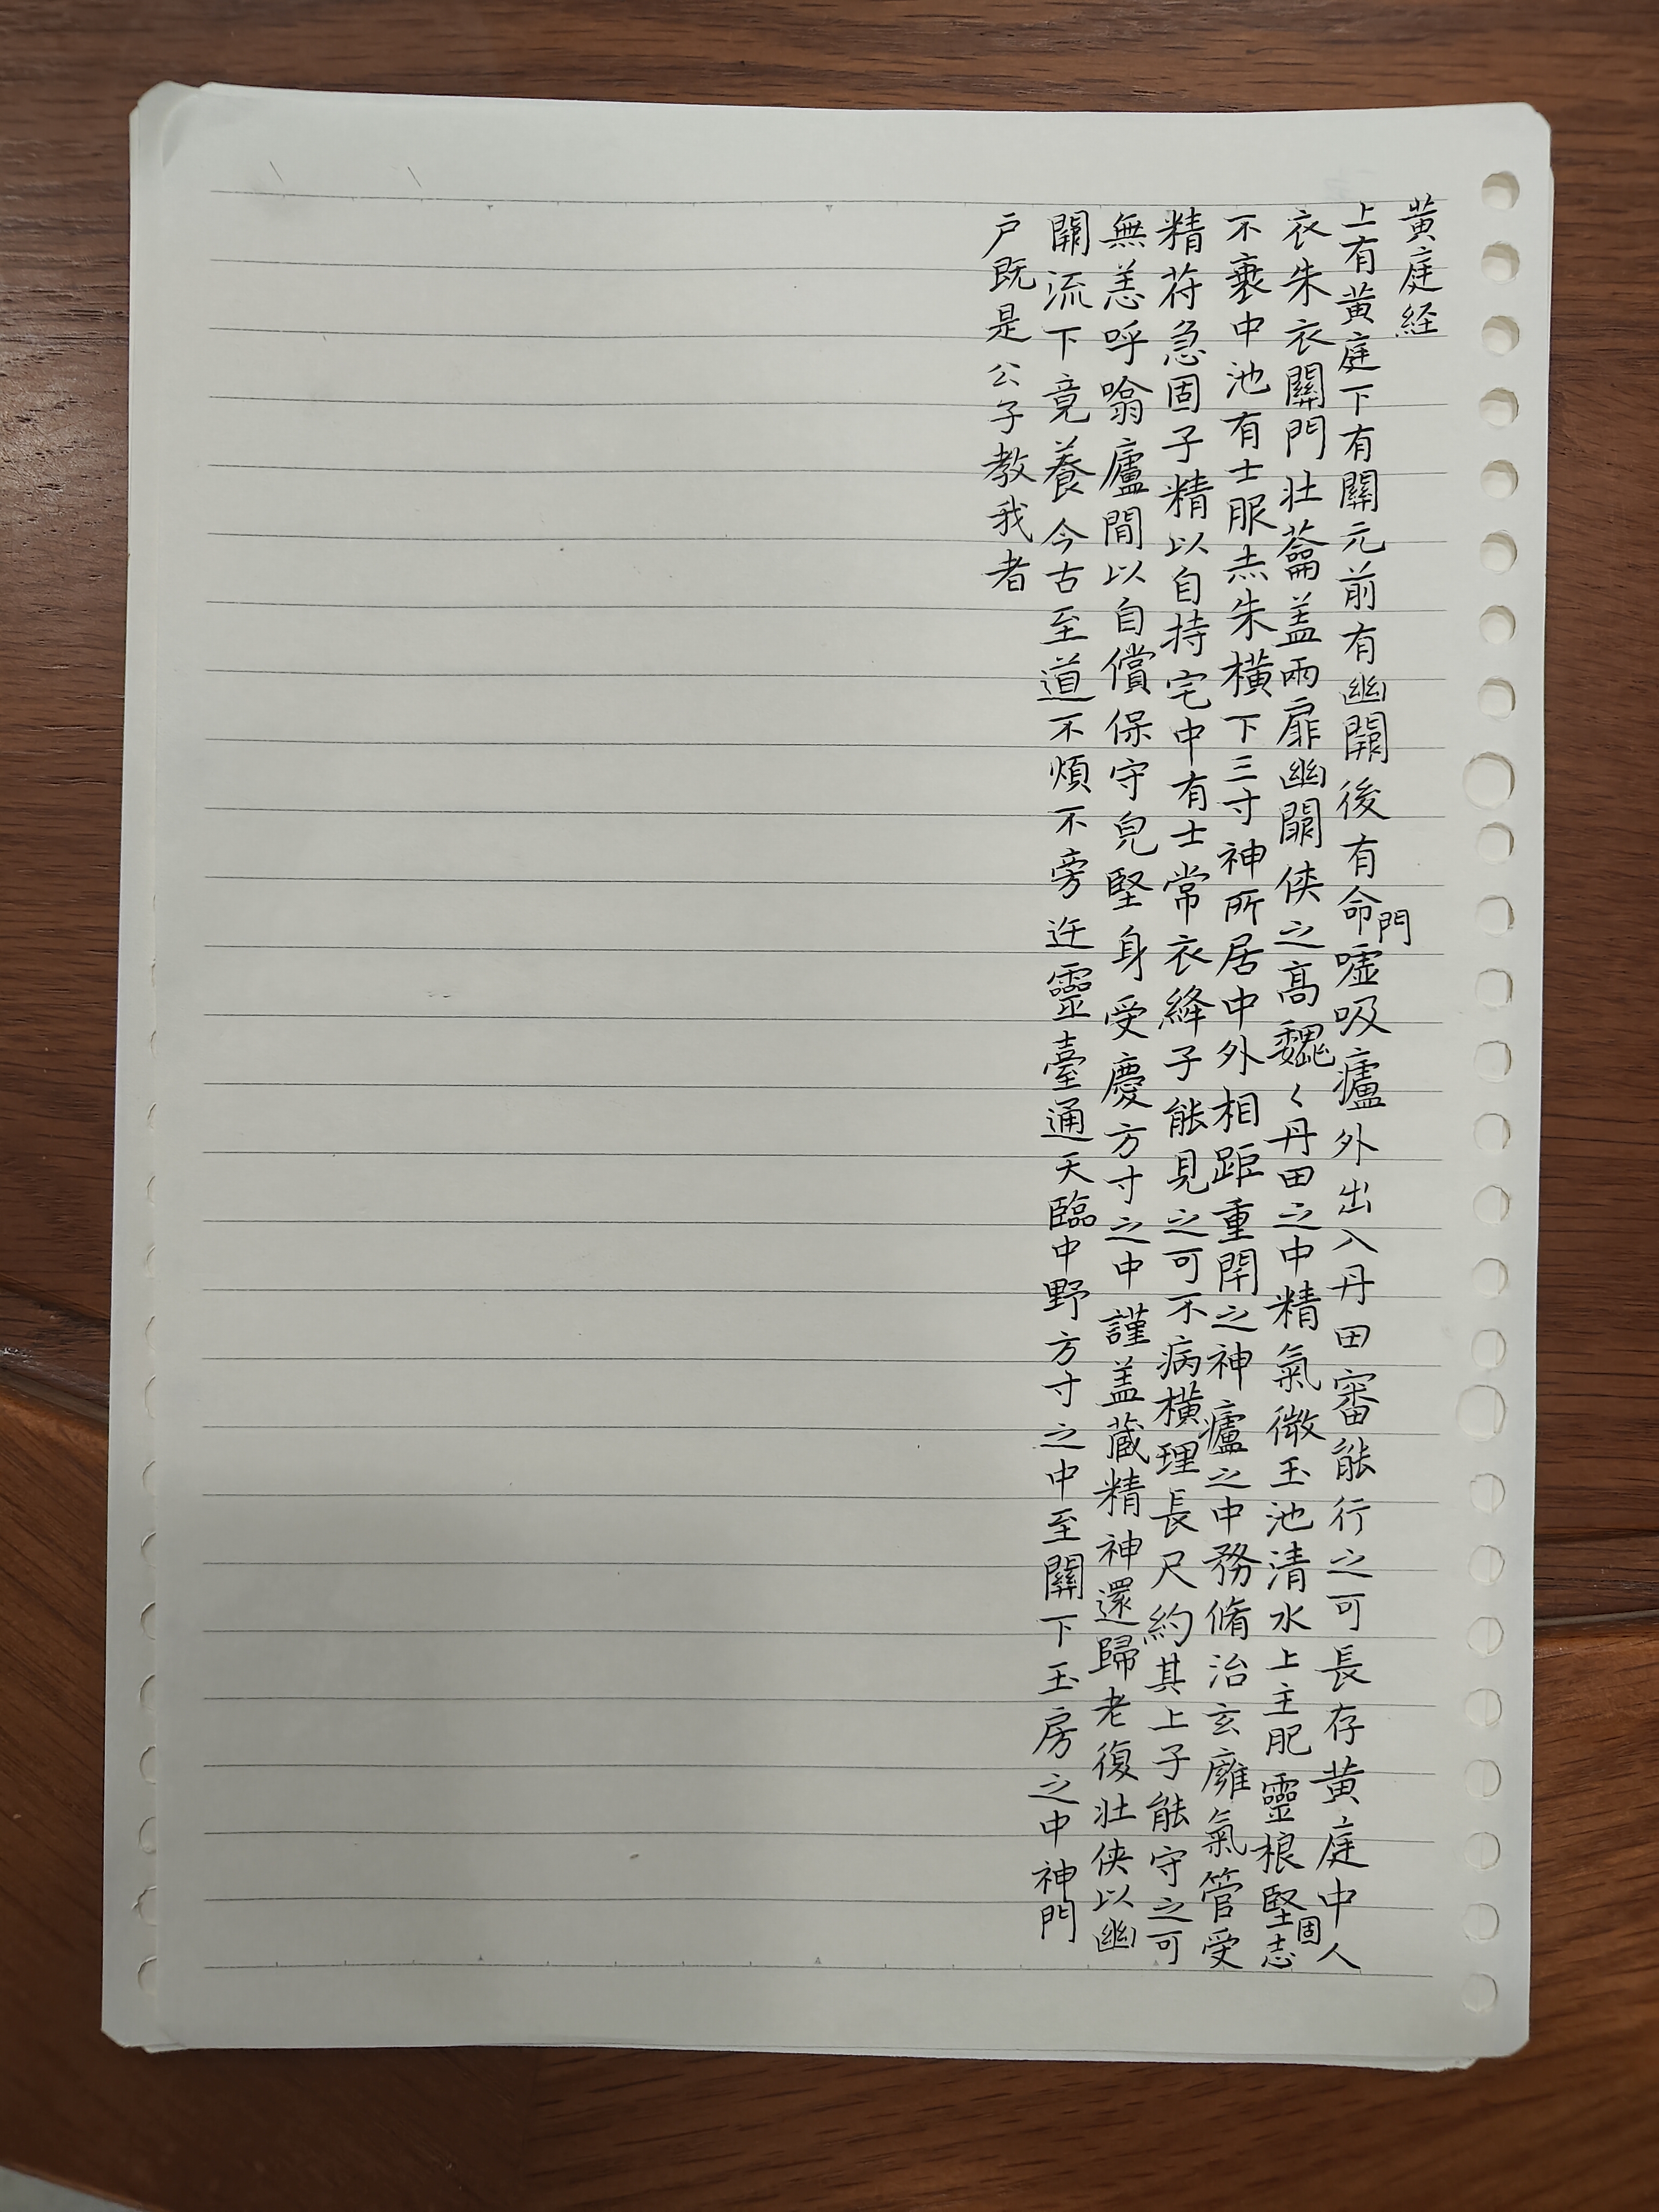 黄庭経
上有黄庭下有關元前有幽闕後有命門噓吸廬外出入丹田審能行之可長存黄庭中人
衣朱衣關門壯蘥盖兩扉幽闕俠之高巍〻丹田之中精氣微玉池清水上生肥靈根堅固志
不衰中池有士服赤朱橫下三寸神所居中外相距重閉之神廬之中務脩治玄廱氣管受
精苻急固子精以自持宅中有士常衣絳子能見之可不病橫理長尺約其上子能守之可
無恙呼噏廬間以自償保守皃堅身受慶方寸之中謹盖蔵精神還歸老復壯俠以幽
闕流下竟養今古至道不煩不旁迕靈臺通天臨中野方寸之中至關下玉房之中神門
户既是公子教我者